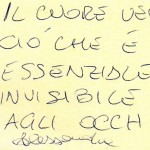 IL CUORE VE
CIÓ CHE È
ESSENZIALE
INVISIBILE
AGLI OCCH